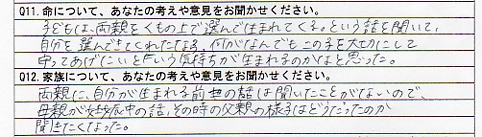 Q11. 命について、あなたの考えや意見をお聞かせください。
子どもは、両親をくもの上で選んで生まれてくる。という話を聞いて、
自分を選んできてくれたなら、何がなんでもこの子を大切にして
守ってあげたいと言う気持ちが生まれるのかなと思った。
Q12. 家族について、あなたの考えや意見をお聞かせください。
両親に、自分が生まれる前世の話は聞いたことがないので、
母親が妊娠中の話、その時の父親の様子はどうだったのか
聞きたくなった。